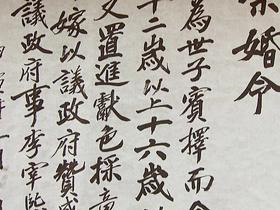 禁婚令
為世子賓擇而令
十二歲以上十六歲
又置進獻色採童
嫁以議政府贊成
議政府事李宰